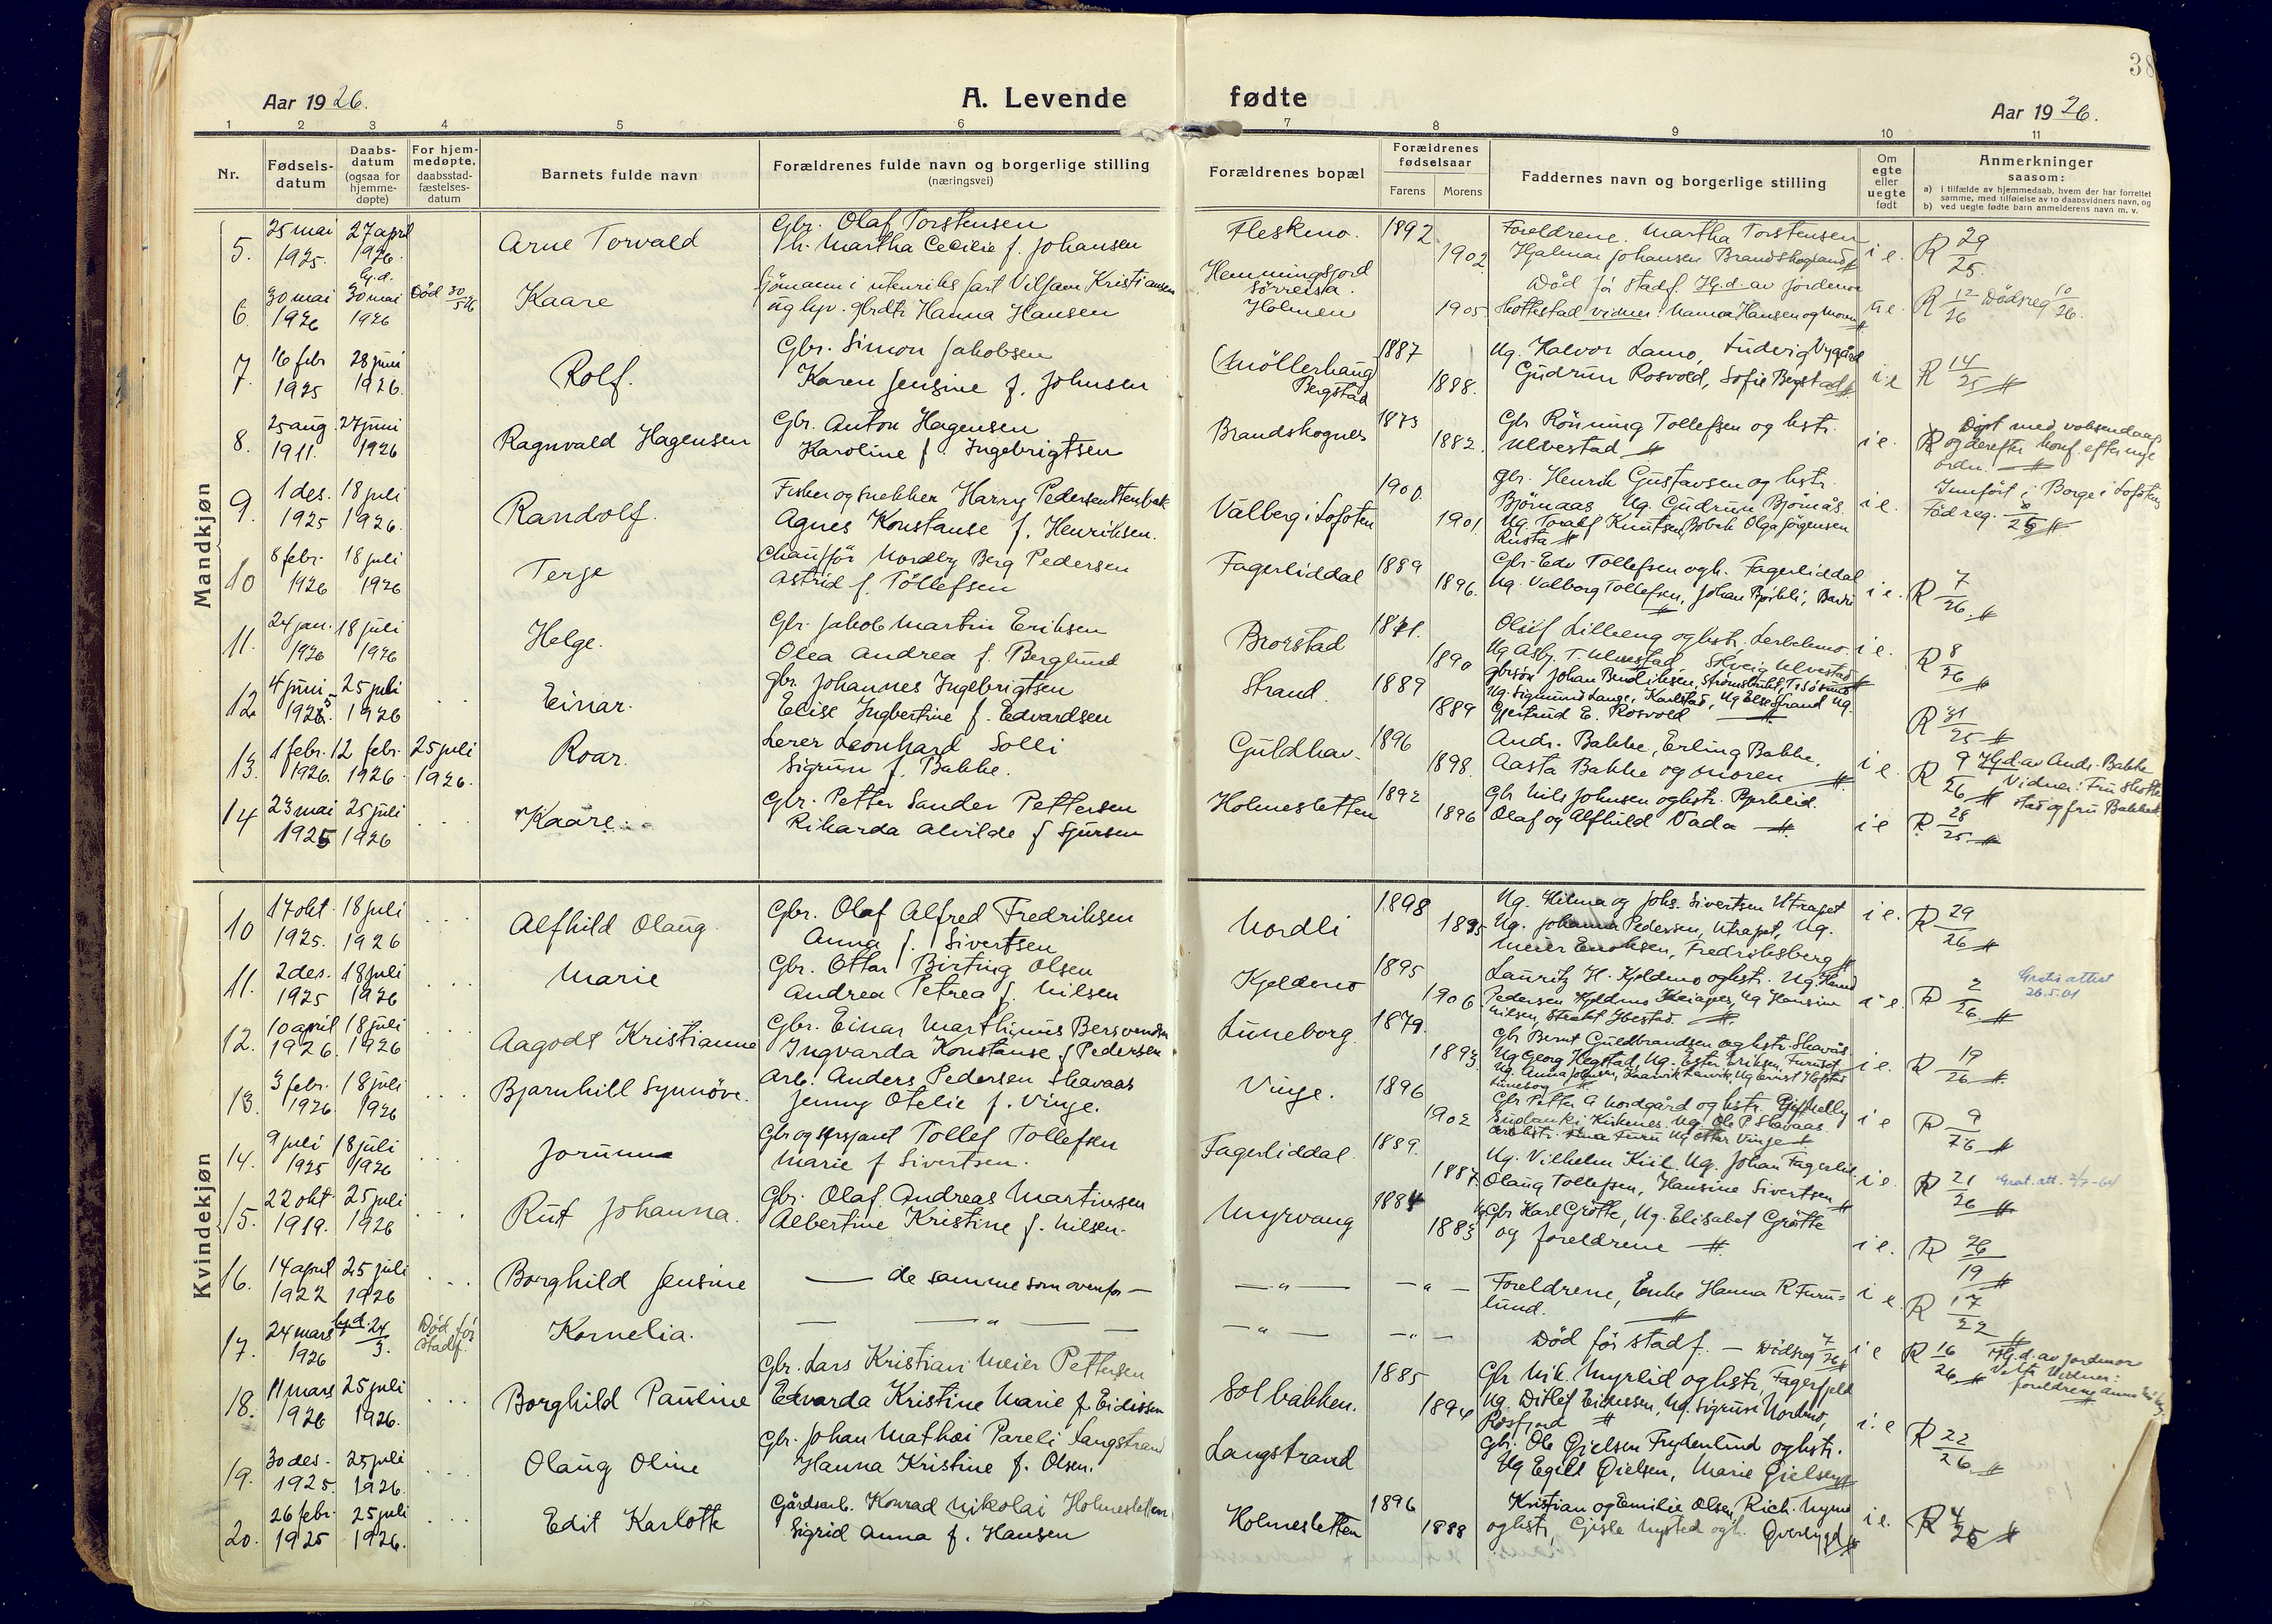 38
Aar 1926.
A. Levende
fødte
Aar 1926.
1 2 3 4 5 6 7 8 9 10 11
Nr.
Fødsels-
datum
Daabs-
datum
(ogsaa for
hjemme-
døpte)
For hjem-
medøpte,
daabsstad-
fæstelses-
datum
Barnets fulde navn
Forældrenes fulde navn og borgerlige stilling
(næringsvei)
Forældrenes bopæl
Forældrenes
fødselsaar
Farens Morens
Faddernes navn og borgerlige stilling
Om
egte
eller
uegte
født
Anmerkninger
saasom:
a) i tilfælde av hjemmedaab, hvem der har forrettet
samme, med tilføielse av to daabsvidners navn, og
b) ved uegte fødte barn anmelderens navn m. v.
Mandkjøn
5. 25 mai 1925. 27 april 1926. Arne Torvald
Gbr. Olaf Torstensen
h. Martha Cecilie f. Johansen
Fleskmo. 1892. 1902
Foreldrene. Martha Torstensen
Hjalmar Johansen Brandskognes
i e. R 29/25.
6. 30 mai 1926 hj.d. 30 mai 1926 Død 30/5 26 Kaare
Sjömann i utenriks fart Vilfam Kristiansen
ug hyv. gbrdtr Hanna Hansen
Hemmingsfjord
Sörreisa.
Holmen 1905
Död för stadf. Hj.d. av jordmor
Skottestad vidner: Hanna Hansen og moren
u e. R 12/26 Dödsreg 10/26.
7. 16 febr 1925 28 juni 1926. Rolf.
Gbr. Simon Jakobsen
Karen Jensine f. Johnsen
(Möllerhaug)
Bergstad 1887 1888.
Ug. Halvor Lamo, Ludvig Nygård
Gudrun Rosvold, Sofie Bergstad
i e R 14/25
8. 25 aug. 1911. 27 juni 1926 Ragnvald Hagensen
Gbr. Anton Hagensen
Karoline f. Ingebrigtsen
Brandskognes 1873 1882.
Gbr Rönning Tollefsen og hstr.
Ulvestad
i e. R Döpt med voksendaap
og derefter konf. efter nye
ordn.
9. 1 des. 1925 18 juli 1926. Randolf.
Fisker og snekker Harry Pedersen Stenbak
Agnes Konstanse f. Henriksen.
Valberg i Lofoten 1900. 1901.
Gbr. Henrik Gustavsen og hstr.
Björnaas Ug. Gudrun Björnås.
Ug. Toralf Knutsen, Olga Jörgensen
Rusta
i e. Innfört i Borge i Lofoten
Födreg.
10 8 febr. 1926 18 juli 1926 Terje
Chaufför Nordby Berg Pedersen
Astrid f. Töllefsen
Fagerliddal 1889 1896.
Gbr. Edv Tollefsen og h. Fagerliddal
Ug. Valborg Tollefsen, Johan
i e. R 7/26
11. 24 jan. 1926 18 juli 1926 Helge.
Gbr. Jakob Martin Eriksen
Olea Andrea f. Berglund
Brorstad 1890
Oluf Lilleng og hstr.
Ug Asbj. T. Ulvestad Solveig Ulvestad
i e. R 8/26
12 4 juni 1925. 25 juli 1926 Einar.
Gbr. Johannes Ingebrigtsen
Elise Ingbertine f. Edvardsen
Strand 1889 1889
Gbrsön Johan Bendiksen,
Ug. Sigmund Lange, Karlstad, Ug Else Strand Ug.
Gjertrud E. Rosvold
R 31/25
13. 1 febr. 1926. 12 febr. 1926. 25 juli 1926. Roar.
Lærer Leonhard Solli
Sigrun f. Bakke.
Guldhav. 1896 1898.
Andr. Bakke, Erling Bakke,
Aasta Bakke og moren
i e. R 9/26 Hj.d. av Andr. Bakke
Vidner: Fru Skotte-
stad og fru Bakke
14 23 mai 1925 25 juli 1926 Kaare.
Gbr. Petter Sander Pettersen
Rikarda Alvilde f Sjursen
Holmesletten 1892 1896
Gbr Nils Johnsen og hstr.
Olaf og Alfhild Vada
i e R 28/25
Kvindekjøn
10 17 okt 1925. 18 juli 1926 Alfhild Olaug.
Gbr. Olaf Alfred Fredriksen
Anna f. Sivertsen
Nordli 1898 1895
Ug. Hilma og Johs. Sivertsen Utrapet
Ug. Johanna Pedersen, Utrapet, Ug.
Meier Enoksen, Fredriksberg
i e. R 29/26
11. 2 des. 1925 18 juli 1926 Marie
Gbr. Ottar Birting Olsen
Andrea Petrea f. Nilsen
Kjeldmo 1895 1906.
Lauritz H. Kjeldmo og hstr. Ug.
Pedersen Kjeldmo Ug Hansine
Nilsen, Ibestad.
i e. R 2/26 Gratis attest
26.5.01
12. 10 april 1926. 18 juli 1926 Aagodt Kristianne
Gbr. Einar Marthinus Bersvendsen
Ingvarda Konstanse f Pedersen
Luneborg 1879. 1893.
Gbr Bernt Guldbrandsen og hstr. Skavås
Ug Georg Hegstad, Ug. Ester Eriksen,
Ug. Anna Johnsen,
Luneborg
i e. R 19/26
13. 3 febr. 1926 18 juli 1926 Bjarnhill Synnöve.
Arb. Anders Pedersen Skavaas
Jenny Otelie f. Vinge.
Vinge. 1896 1902
Gbr Petter A Nordgård og hstr.
Kirkenes. Ug. Ole P Skavaas.
Ug Ottar Vinge
i e R 9/26
14. 9 juli 1925 18 juli 1926 Jorunn
Gbr og sersjant Tollef Tollefsen
Marie f Sivertsen.
Fagerliddal. 1889. 1887.
Ug. Vilhelm Kiil. Ug. Johan Fagerlid
Olaug Tollefsen, Hansine Sivertsen
i e. R 21/26 Grat. att.
15. 22 okt 1919. 25 juli 1926 Rut Johanna.
Gbr. Olaf Andreas Martinsen
Albertine Kristine f. Nilsen.
Myrvang 1884 1883
Gbr Karl Grötte, Ug. Elisabet Grötte
og foreldrene
i e. R 26/19
16. 14 april 1922 25 juli 1926 Borghild Jensine
— de samme som ovenfor —
— " — — " —
Foreldrene, Enke Hanna R Furu-
lund.
i e. R 17/22
17. 24 mars 1926 hj.d. 24/3. Död för stadf. Kornelia.
— " —
— " — — " —
Död för stadf. — Dödsreg 7/26
i e R 16/26 Hj.d. av jordmor
Vidner:
foreldrene
18. 11 mars 1926 25 juli 1926. Borghild Pauline
Gbr. Lars Kristian Meier Pettersen
Edvarda Kristine Marie f. Eidissen
Solbakken. 1885 1894
Gbr Nik. Myrlid og hstr, Fagerfjeld
Ug. Ditlef Eidissen, Ug. Sigrun Nordmo,
Rosfjord
i. e R 22/26
19. 30 des. 1925. 25 juli 1926 Olaug Oline
Gbr. Johan Mathæi Pareli Langstrand
Hanna Kristine f. Olsen.
Langstrand
Gbr. Ole Gjelsen Frydenlund og hstr.
Ug Egill Gjelsen, Marie Gjelsen
20. 26 febr. 1925 25 juli 1926. Edit Karlotte
Gårdsarb. Konrad Nikolai Holmesletten
Sigrid Anna f. Hansen
Holmesletten 1896 1888
Kristian og Emilie Olsen, Rich. Nymo
og hstr, Gisle Nysted og h. Överbygd
i e. R 4/25